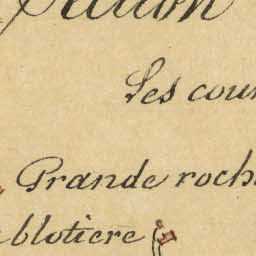 Les cour
Grande roch
blotiere